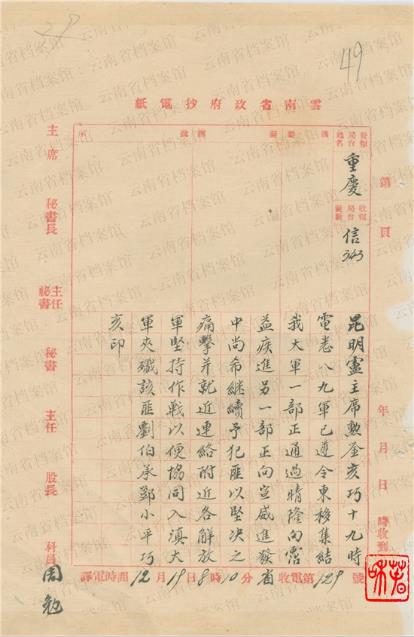 49
雲南省政府抄電紙
第 頁 年 月 日 時收到
發報局台地名 重慶 收報局台號數 信 343
昆明盧主席勲鉴亥巧十九時
電悉八九軍已遵令東移集結
我大軍一部正通過晴隆向霑
益疾進另一部正向宣威進發省
中尚希継續予犯匪以堅决之
痛擊并就近連絡附近各解放
軍堅持作戰以便協同入滇大
軍夾殲該匪劉伯承鄧小平巧
亥印
省收電第129號
譯電時間12月19日8時10分
主席 秘書長 主任秘書 秘書 主任 股長 科員 周勉
云南省档案馆